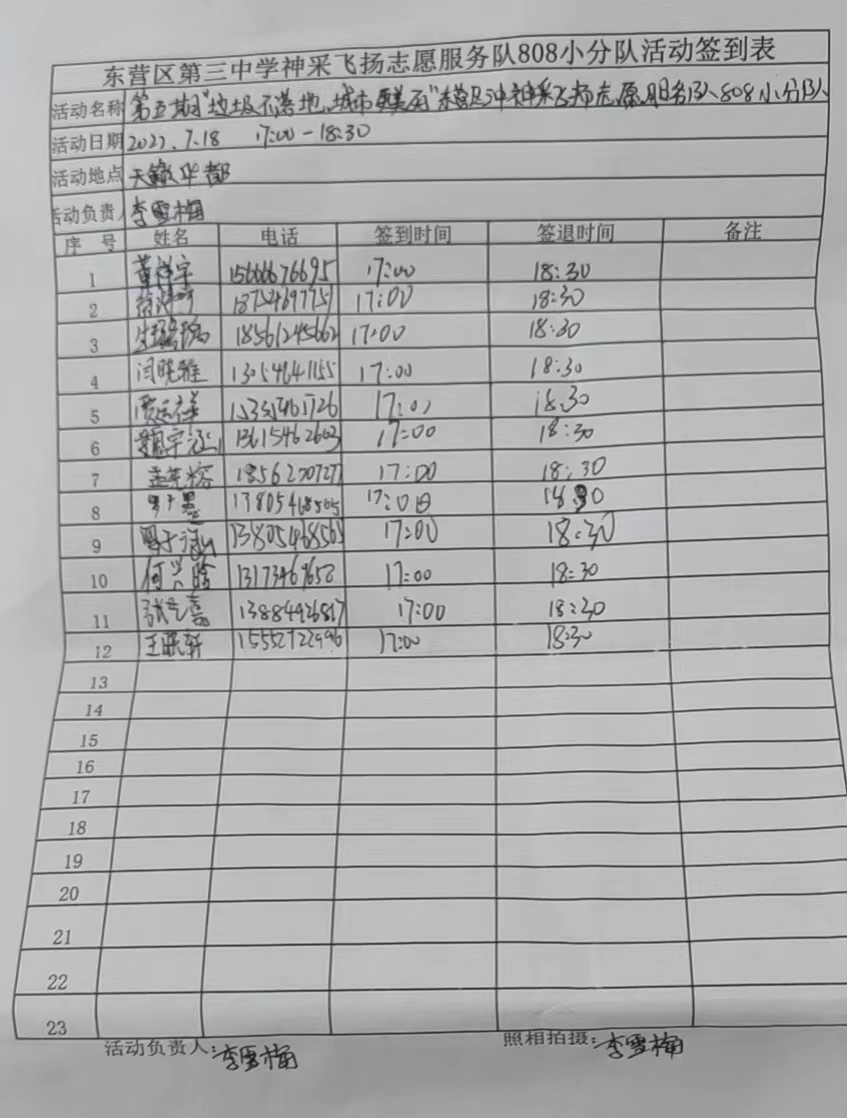 东营区第三中学神采飞扬志愿服务队808小分队活动签到表
活动名称 第五期"垃圾不落地,城市更美丽"东营区三中神采飞扬志愿服务队808小分队
活动日期 2022.7.18 17:00-18:30
活动地点 天鑫华都
活动负责人 李雪梅
序号 姓名 电话 签到时间 签退时间 备注
1 董祥宇 15666676695 17:00 18:30
2 17:00 18:30
3 18561245662 17:00 18:30
4 闫晓雅 13054641155 17:00 18:30
5 17:00 18:30
6 魏宇涵 13615462603 17:00 18:30
7 17:00 18:30
8 17:00 18:30
9 13805468565 17:00 18:30
10 何兴晗 13173469658 17:00 18:30
11 13884926817 17:00 18:30
12 王晓轩 15552722996 17:00 18:30
13
14
15
16
17
18
19
20
21
22
23
活动负责人:李雪梅 照相拍摄:李雪梅